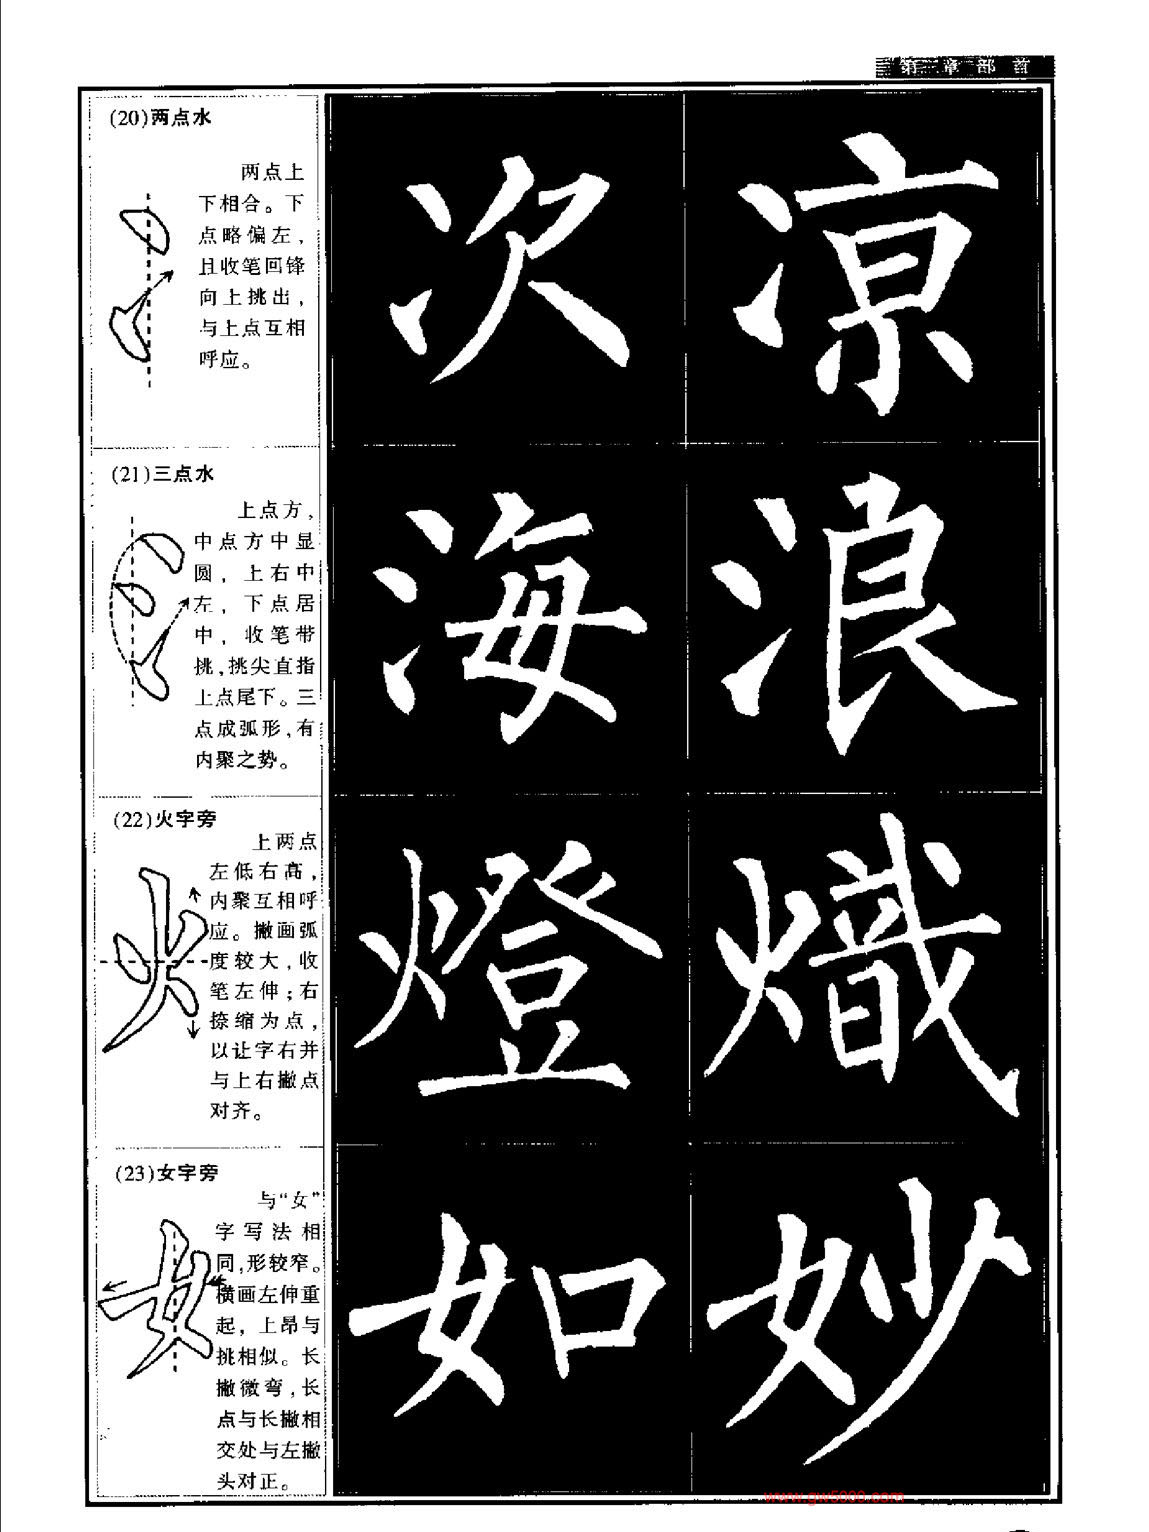 第三章部首
(20)两点水
两点上
下相合。下
点略偏左，
且收笔回锋
向上挑出，
与上点互相
呼应。
次
凉
(21)三点水
上点方，
中点方中显
圆，上右中
左，下点居
中，收笔带
挑，挑尖直指
上点尾下。三
点成弧形，有
内聚之势。
海
浪
(22)火字旁
上两点
左低右高，
内聚互相呼
应。撇画弧
度较大，收
笔左伸；右
捺缩为点，
以让字右并
与上右撇点
对齐。
燈
熾
(23)女字旁
与“女”
字写法相
同，形较窄。
横画左伸重
起，上昂与
挑相似。长
撇微弯，长
点与长撇相
交处与左撇
头对正。
如
妙
www.gw5000.com